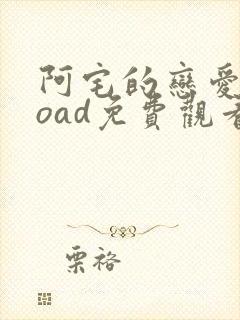 阿宅的戀愛
oad免費觀看
栗裕